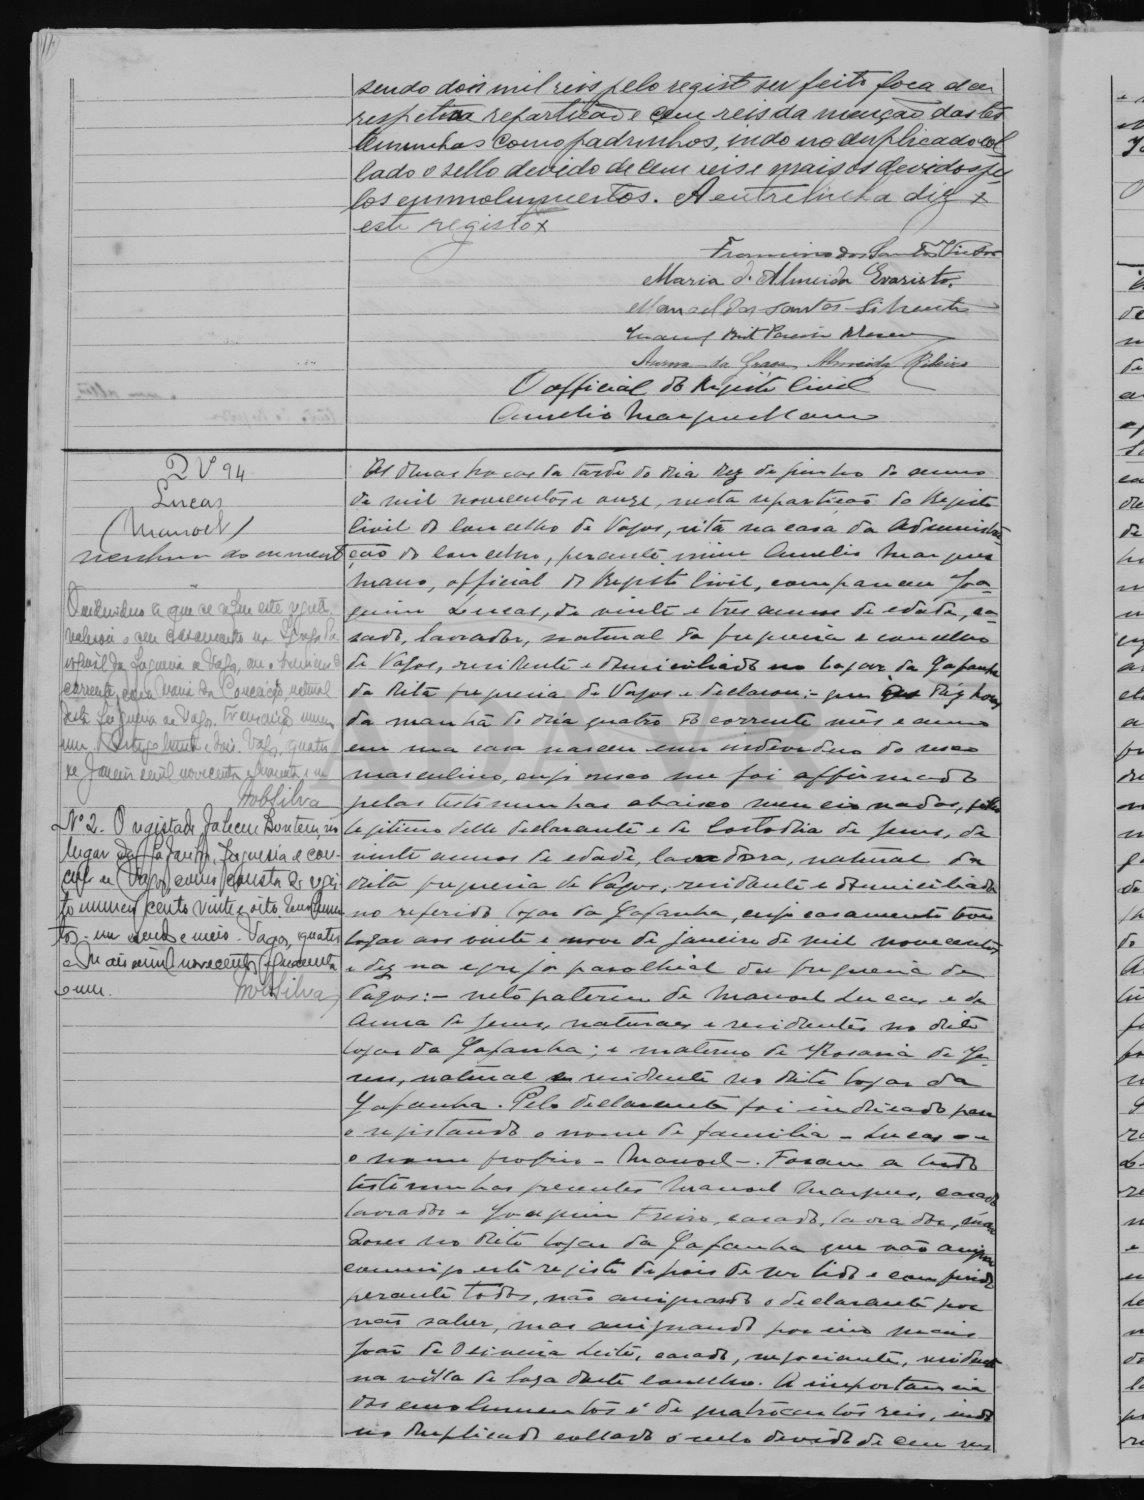 sendo dois mil reis pelo registo ser feito fóra da
respetiva repartição e cem reis da menção das tes
temunhas como padrinhos, indo no duplicado col
lado o sello devido de cem reis e mais os devidos pe
los emmolumentos. A entrelinha diz x
este registo x
Francisco dos Santos
Maria d'Almeida Evaristo.
Manoel dos Santos Silvestre
da Graça Almeida Ribeiro
O official do Registo Civil
Aurelio Marques Mano
Nº 94
Lucas
(Manoel)
nenhum documento
O individuo a que se refere este registo,
realisou o seu casamento na Igreja Pa
roquial da freguesia de Vagos,
corrente, com Maria da Conceição natural
desta freguesia de Vagos.
Vagos, quatro
de Janeiro mil novecentos quarenta e um
MobSilva
Nº 2. O registado faleceu ontem, no
lugar da Gafanha, freguesia e con-
celho de Vagos, como consta do regis-
to numero cento vinte e oito
Vagos, quatro
de Maio mil novecentos quarenta
e um. MobSilva
Ás duas horas da tarde do dia dez de junho do anno
de mil novecentos e onze, nesta repartição do Registo
Civil do concelho de Vagos, sita na casa da Administra
ção do concelho, perante mim Aurelio Marques
Mano, official do Registo Civil, compareceu Joa
quim Lucas, de vinte e tres annos de edade, ca
sado, lavrador, natural da freguesia e concelho
de Vagos, residente e domiciliado no logar da Gafanha
da dita freguesia de Vagos e declarou:- que ás dez horas
da manhã do dia quatro do corrente mês e anno
em sua casa nasceu um individuo do sexo
masculino, cujo sexo me foi affirmado
pelas testemunhas abaixo mencionadas, filho
legitimo delle declarante e de Custodia de Jesus, de
vinte annos de edade, lavradora, natural da
dita freguesia de Vagos, residente e domiciliada
no referido logar da Gafanha, cujo casamento teve
logar aos vinte e nove de janeiro de mil novecentos
e dez na egreja parochial da freguesia de
Vagos:- neto paterno de Manoel Lucas e de
Anna de Jesus, naturaes e residentes no dito
logar da Gafanha; e materno de Rosaria de Je
sus, natural e residente no dito logar da
Gafanha. Pelo declarante foi indicado para
o registando o nome de familia - Lucas - e
o nome proprio - Manoel -. Foram a tudo
testemunhas presentes Manoel Marques, casado
lavrador e Joaquim Freire, casado, lavrador, mora
dores no dito logar da Gafanha que vão assignar
commigo este registo depois de ser lido e conferido
perante todos, não assignando o declarante por
não saber, mas assignando por isso mais
João de Oliveira Leite, casado, negociante, residente
na villa de Soza deste concelho. A importancia
dos emolumentos é de quatrocentos reis, indo
no duplicado collado o sello devido de cem reis